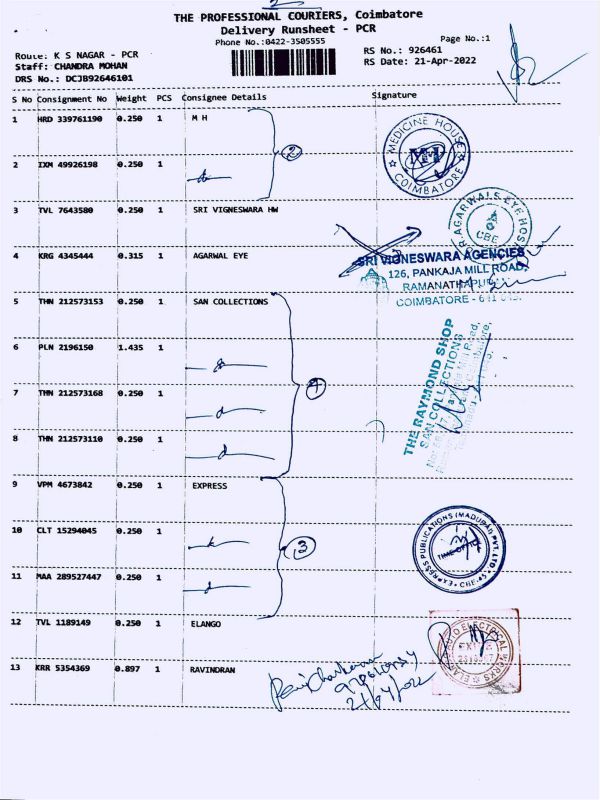 THE PROFESSIONAL COURIERS, Coimbatore
Delivery Runsheet - PCR
Phone No.:0422-3505555
Page No.:1
Route: K S NAGAR - PCR
RS No.: 926461
Staff: CHANDRA MOHAN
RS Date: 21-Apr-2022
DRS No.: DCJB92646101
S No Consignment No Weight PCS Consignee Details Signature
1 HRD 339761190 0.250 1 M H
MEDICINE HOUSE
COIMBATORE
2
2 IXM 49926198 0.250 1
3 TVL 7643580 0.250 1 SRI VIGNESWARA HW
DR. AGARWALS EYE HOSP
CBE
4 KRG 4345444 0.315 1 AGARWAL EYE
SRI VIGNESWARA AGENCIES
126, PANKAJA MILL ROAD,
RAMANATHAPURAM
COIMBATORE - 641 045.
5 THN 212573153 0.250 1 SAN COLLECTIONS
6 PLN 2196150 1.435 1
THE RAYMOND SHOP
SAN COLLECTIONS
4
7 THN 212573168 0.250 1
8 THN 212573110 0.250 1
9 VPM 4673842 0.250 1 EXPRESS
10 CLT 15294045 0.250 1
EXPRESS PUBLICATIONS (MADURAI) PVT. LTD
TIME OFFICE
CBE-45
3
11 MAA 289527447 0.250 1
12 TVL 1189149 0.250 1 ELANGO
ELECTRICAL WORKS
13 KRR 5354369 0.897 1 RAVINDRAN
21/04/2022